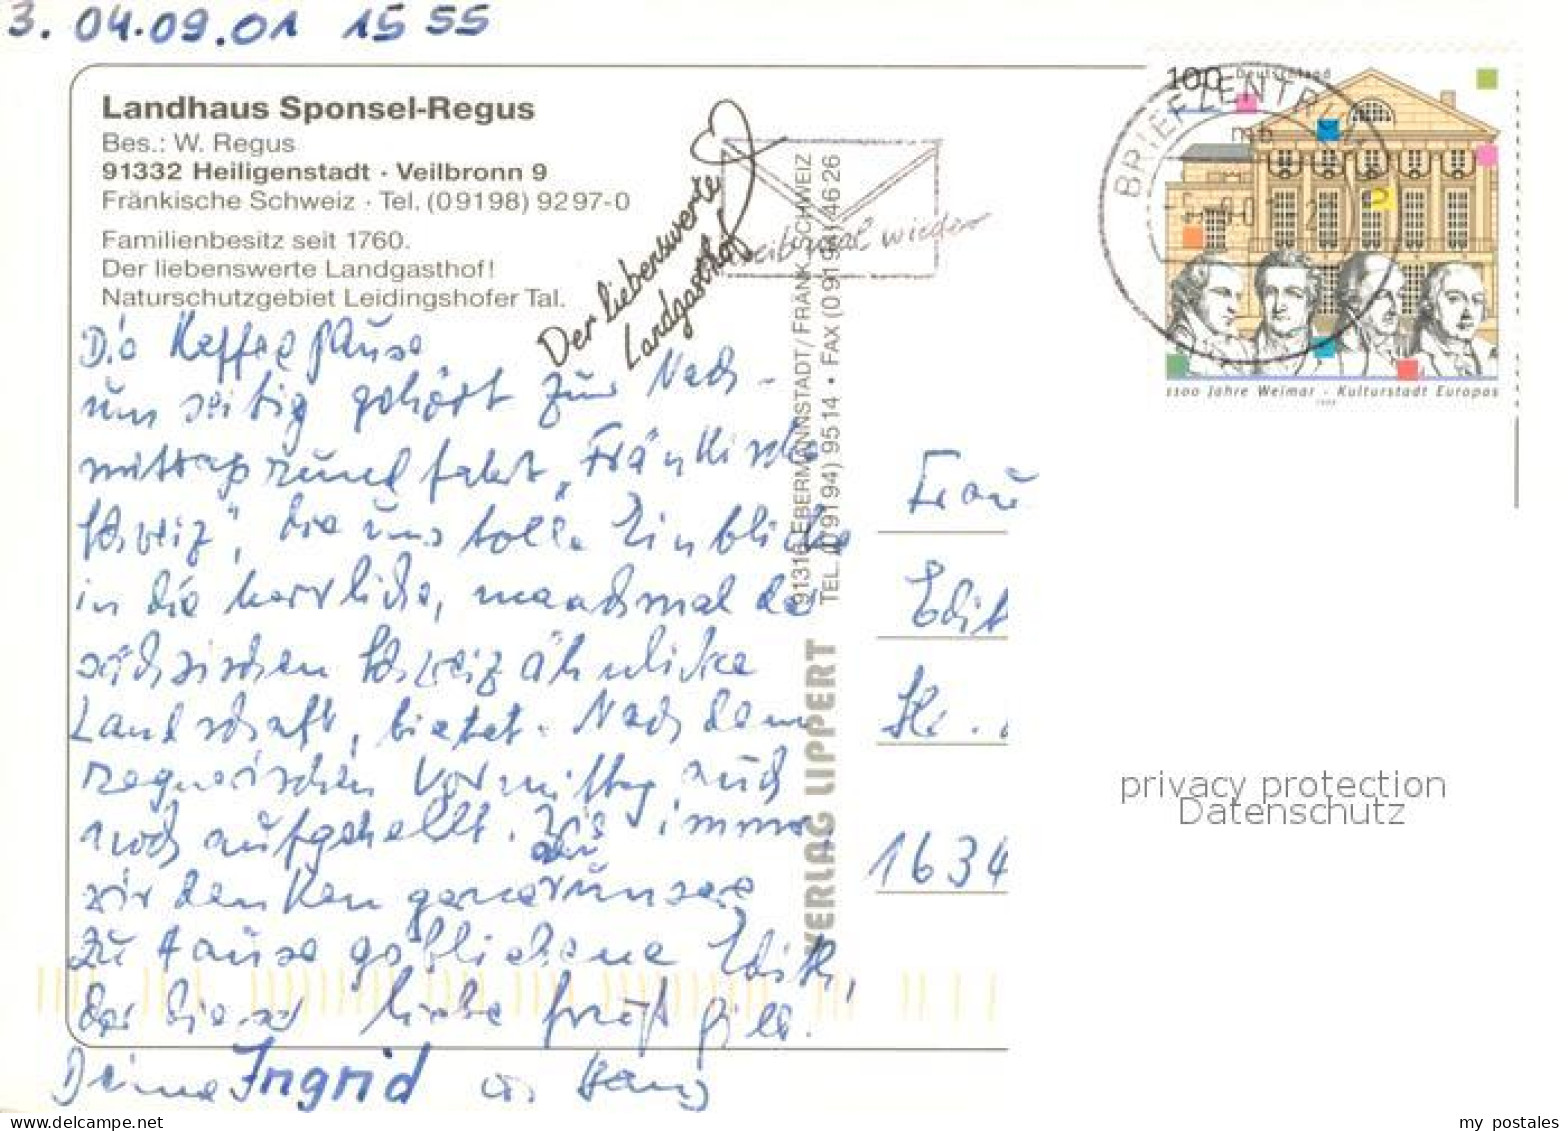 3. 04.09.01 15 55
Landhaus Sponsel-Regus
Bes.: W. Regus
91332 Heiligenstadt · Veilbronn 9
Fränkische Schweiz · Tel. (09198) 9297-0
Familienbesitz seit 1760.
Der liebenswerte Landgasthof!
Naturschutzgebiet Leidingshofer Tal.
Der liebenswerte
Landgasthof
mal wieder
BRIEFZENTRUM
mb
100 Deutschland
1100 Jahre Weimar · Kulturstadt Europas
1999
Die Kaffeepause
um seitig gehört zur Nach-
mittagsrundfahrt „Fränkische
Schweiz", die uns tolle Einblicke
in die herrliche, manchmal der
sächsischen Schweiz ähnliche
Landschaft, bietet. Nach dem
regnerischen Vormittag auch
noch aufgehellt. Wie immer
wir denken gerne an unsere
zu Hause gebliebene Edith,
der dieser liebe Gruß gilt.
Deine Ingrid u. Hans
VERLAG LIPPERT
91316 EBERMANNSTADT / FRÄNK. SCHWEIZ
TEL. (0 91 94) 95 14 • FAX (0 91 94) 46 26
Frau
Edit
1634
privacy protection
Datenschutz
my postales